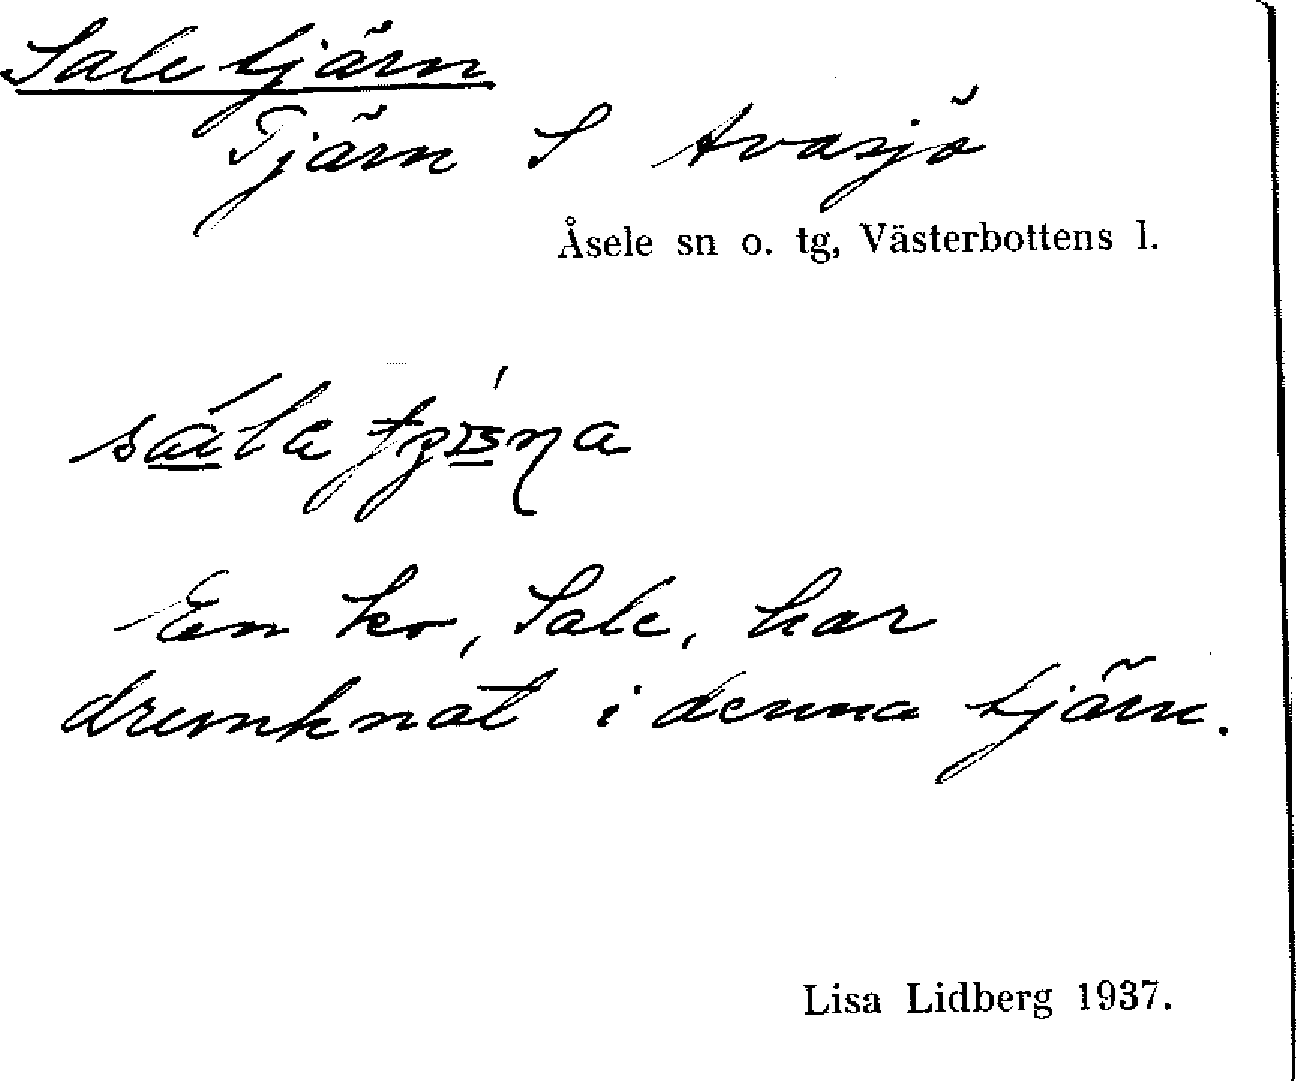 Sale tjärn
Tjärn S Avasjö
Åsele sn o. tg, Västerbottens l.
En ko, Sale, har
drunknat i denna tjärn.
Lisa Lidberg 1937.